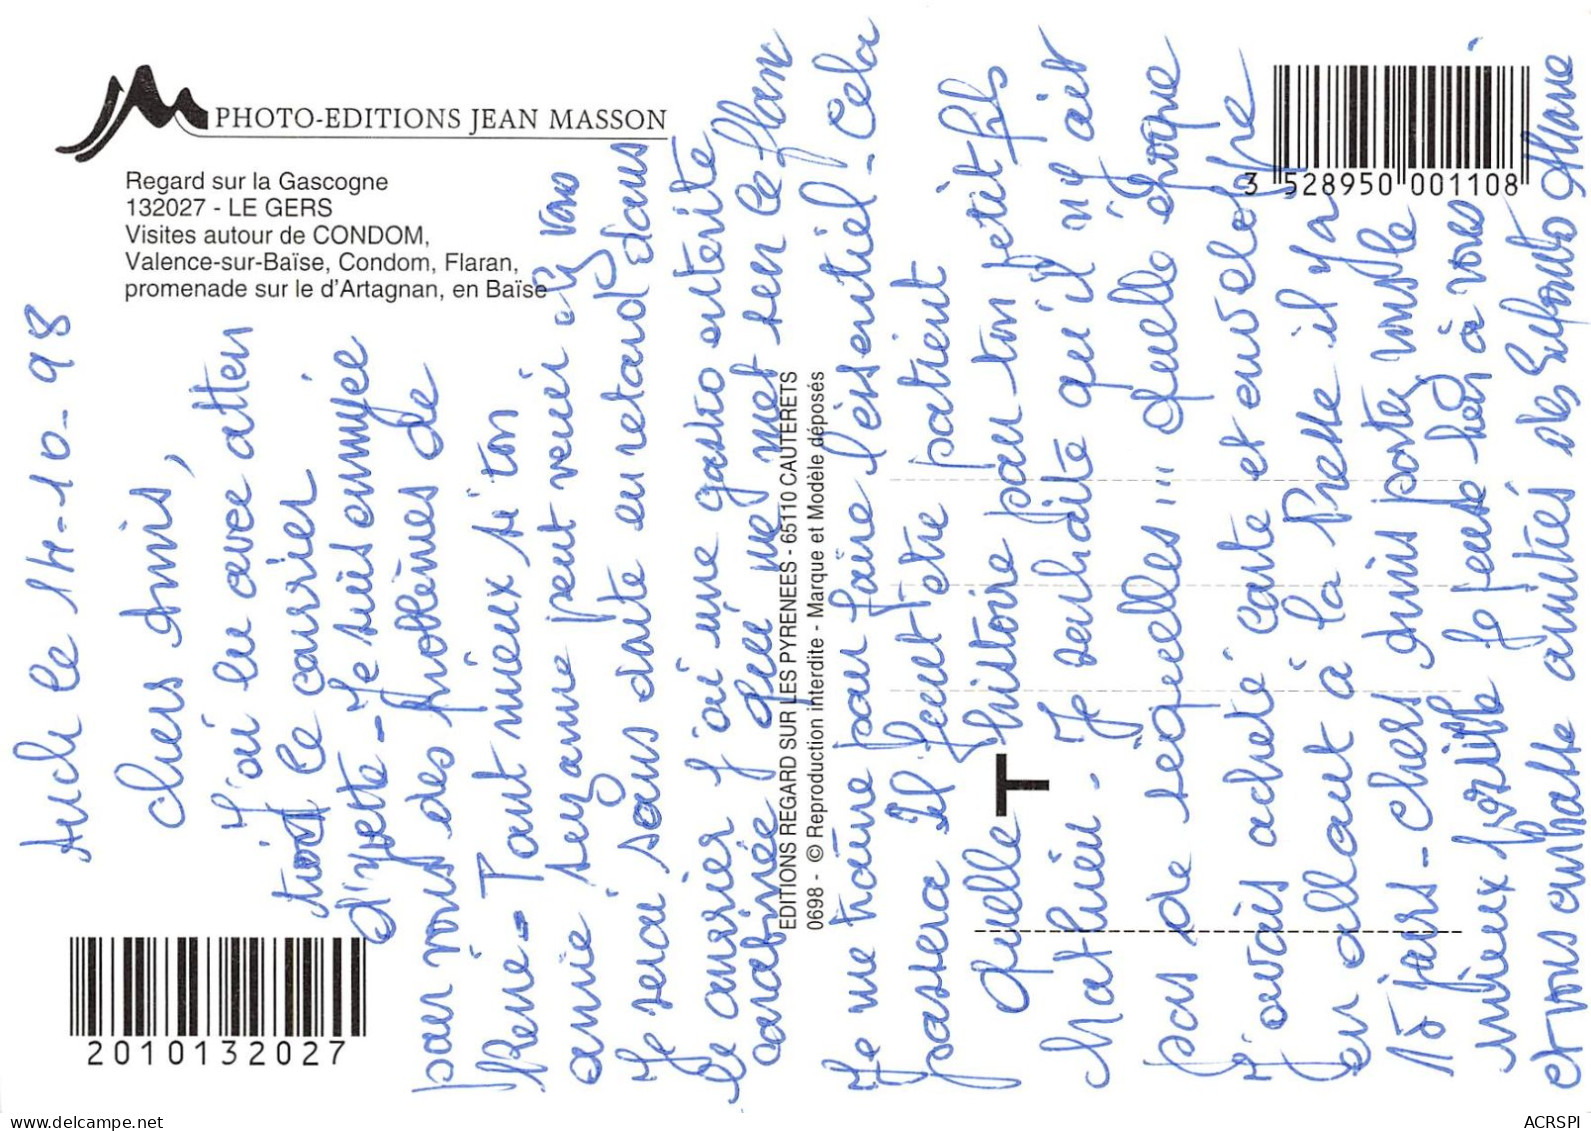 PHOTO-EDITIONS JEAN MASSON
Regard sur la Gascogne
132027 - LE GERS
Visites autour de CONDOM,
Valence-sur-Baïse, Condom, Flaran,
promenade sur le d'Artagnan, en Baïse
3 528950 001108
2010132027
EDITIONS REGARD SUR LES PYRENEES - 65110 CAUTERETS
0698 - © Reproduction interdite - Marque et Modèle déposés
T
Auch le 14-10-98
Chers Amis,
J'ai lu avec atten
tion le courrier
d'Yvette - Je suis ennuyée
pour vous des problèmes de
René - Tant mieux si ton
amie Suzanne peut venir chez vous
Je serai sans doute en retard dans
le courrier j'ai une gastro entérite
carabinée qui me met sur le flanc
Je me traîne pour faire l'essentiel - Cela
passera Il faut être patient
Quelle histoire pour ton petit fils
Mathieu - Je souhaite qu'il n'y ait
pas de sequelles... Quelle époque
J'avais acheté carte et enveloppe
en allant à la Presse il y a
15 jours - Chers Amis portez vous le
mieux possible Je pense bien à vous
et vous embrasse amitiés des Enfants